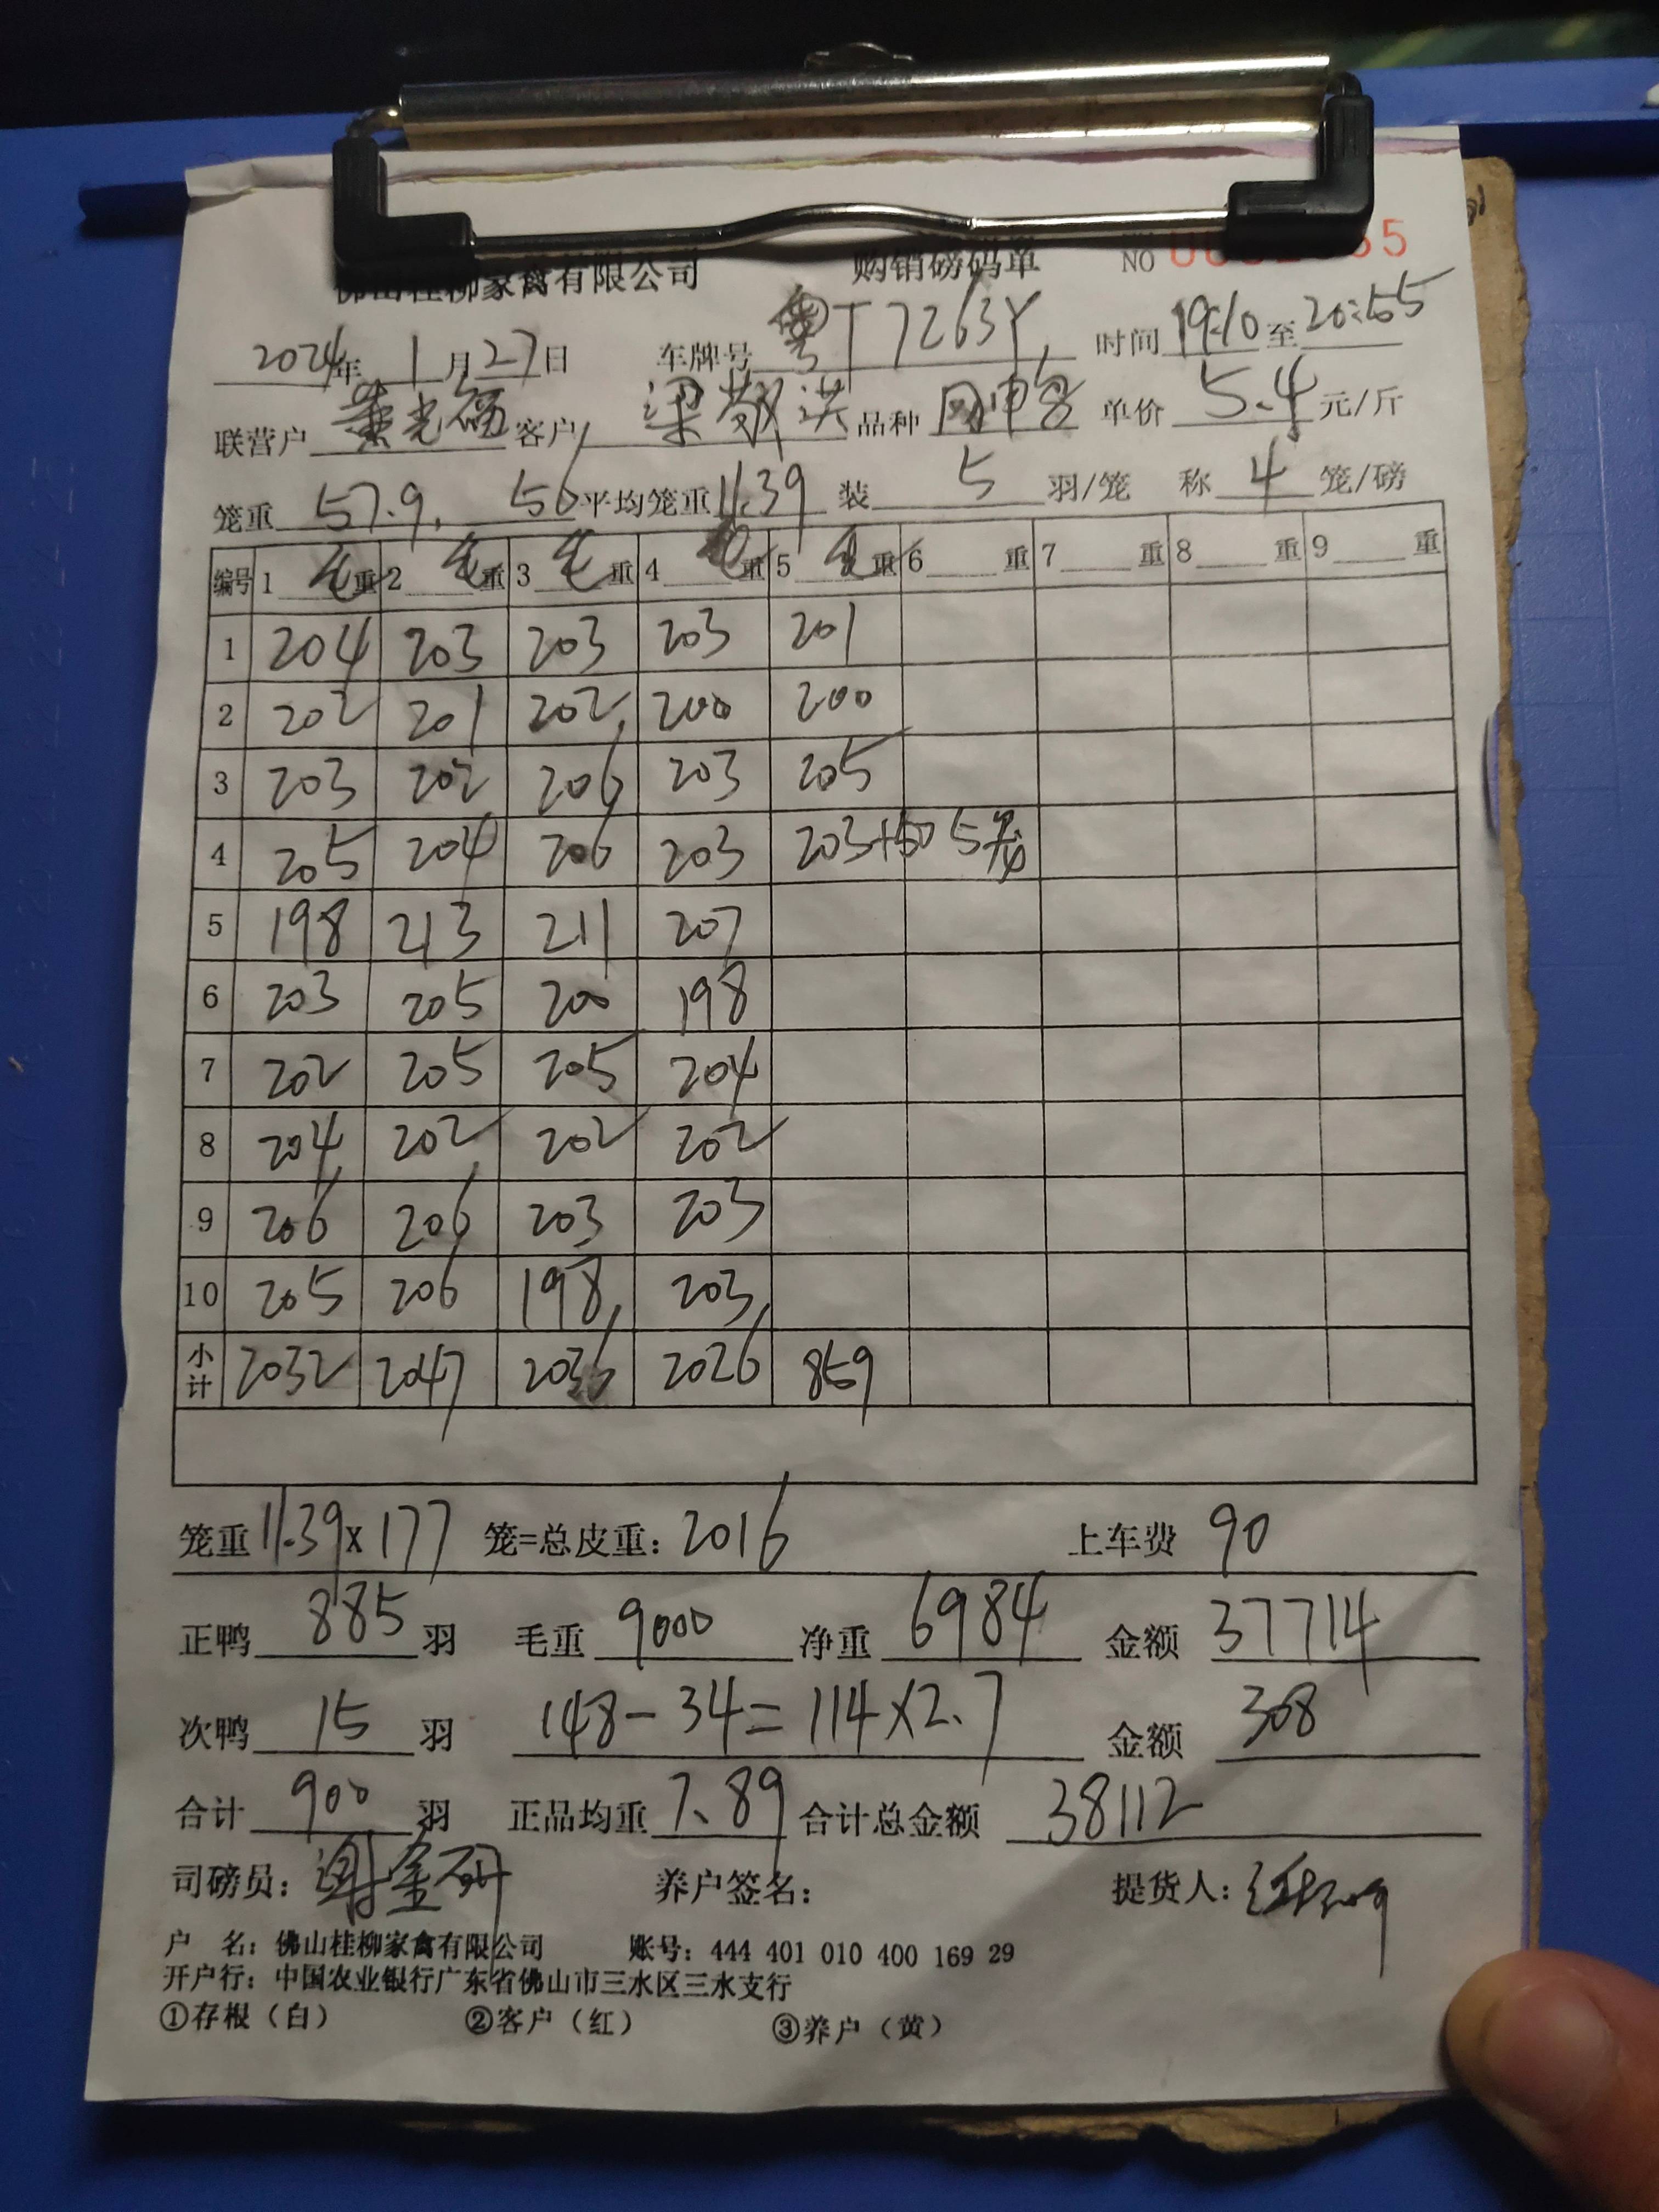 佛山桂柳家禽有限公司 购销磅码单 NO
2024年 1月27日 车牌号 粤T7263Y 时间 19:10 至 20:55
联营户 黄光福 客户 梁敬洪 品种 单价 5.4 元/斤
笼重 57.9, 56 平均笼重 11.39 装 5 羽/笼 称 4 笼/磅
编号 1 毛重 2 毛重 3 毛重 4 毛重 5 毛重 6 重 7 重 8 重 9 重
1 204 203 203 203 201
2 202 201 202 200 200
3 203 202 206 203 205
4 205 204 206 203 203+50 5只
5 198 213 211 207
6 203 205 200 198
7 202 205 205 204
8 204 202 202 202
9 206 206 203 203
10 205 206 198 203
小计 2032 2047 2036 2026 859
笼重 11.39x177 笼=总皮重: 2016 上车费 90
正鸭 885 羽 毛重 9000 净重 6984 金额 37714
次鸭 15 羽 148-34=114×2.7 金额 308
合计 900 羽 正品均重 7.89 合计总金额 38112
司磅员: 谢金研 养户签名: 提货人:
户 名: 佛山桂柳家禽有限公司 账号: 444 401 010 400 169 29
开户行: 中国农业银行广东省佛山市三水区三水支行
①存根（白） ②客户（红） ③养户（黄）